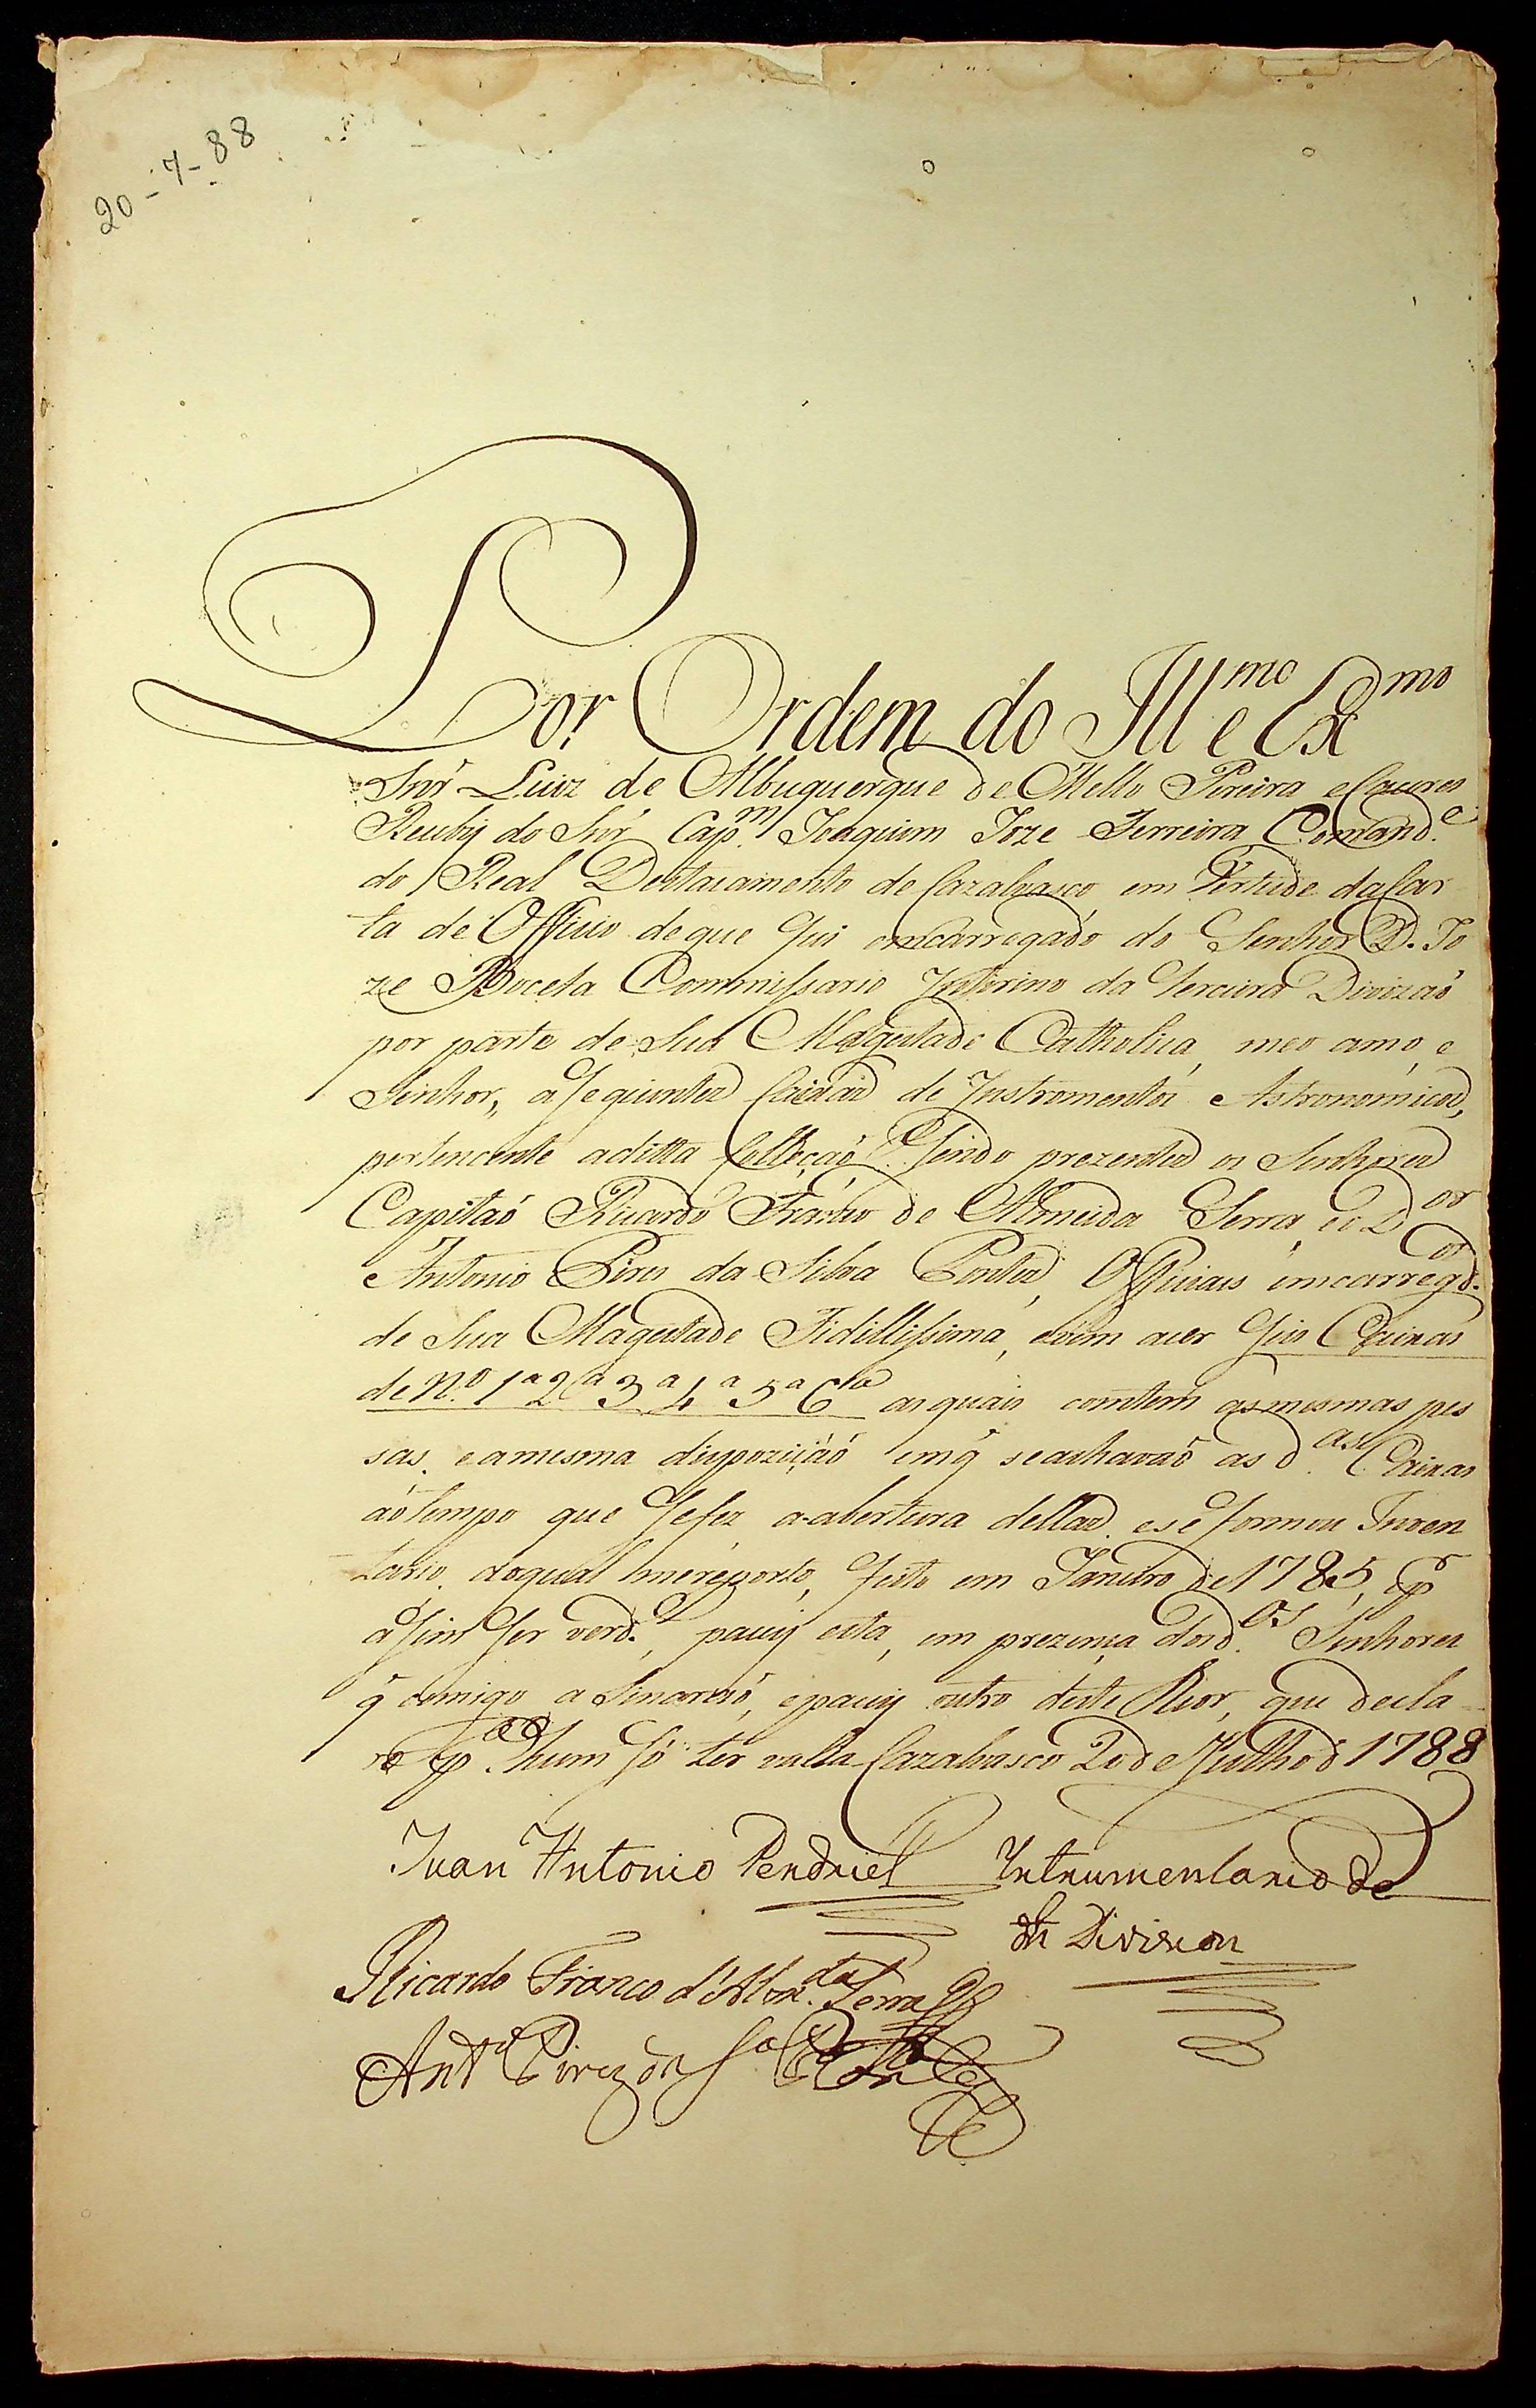 20-7-88
Por Ordem do Illmo e Exmo
Snr Luiz de Albuquerque de Mello Pereira e Caceres
Recebÿ do Snr Capm Joaquim Joze Ferreira Comande
do Real Destacamento de Cazalvasco em Vertude da Car
ta de Officio de que fui emcarregado do Senhor D. Jo
ze Commissario Interino da Terceira Divizaó
por parte de Sua Magestade Catholica, meo amo, e
Senhor, as seguintes Caixas de Instromentos Astronomicos,
pertencente a ditta Collecçaó: Sendo prezentes os Senhores
Capitaó Ricardo Franco de Almeida Serra, e o Dor
Antonio Pires da Silva Pontes, Officiais imcarregdos
de Sua Magestade Fidillissima, evem aser Seis Caixas
de No. 1a 2a 3a 4a 5a 6ta as quais comtem as mesmas pes
sas, e a mesma dispoziçaó emq̃ se achavaó as d.as Caixas
ao tempo que se fez a abertura dellas, e se formou Inven
tario, doqual me reporto, feito em Janeiro de 1785, e pr
asim ser verd.e, passÿ esta, em prezença dos d.os Senhores
q̃ comigo a Sinaraó, e passÿ outro deste theor, que decla
ro pa hum só ter vallor Cazalvasco 20 de Julho d 1788
Juan Antonio Pendriel Intrumentario de
la Division
Ricardo Franco d'Alm.da Serra
Anto Pirez da Sa Pontes